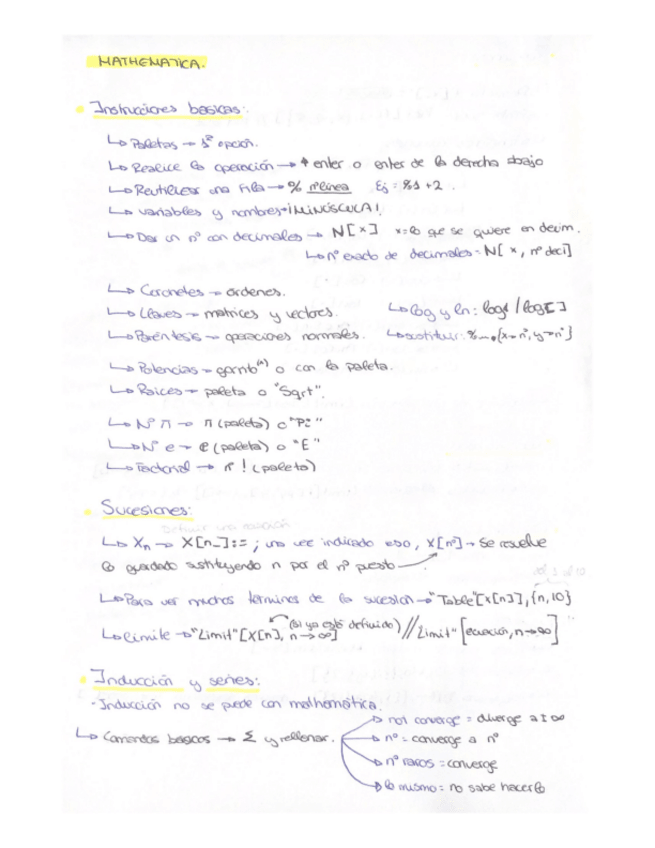 MATHEMATICA.
• Instrucciones basicas:
↳ Paletas → 1ª opción.
↳ Realice la operación → ↑ enter o enter de la derecha abajo
↳ Reutilizar una fila → % nº línea Ej = %1 + 2.
↳ variables y nombres → ¡MINÚSCULA!
↳ Dar un nº con decimales → N[x] x = lo que se quiere en decim.
↳ nº exacto de decimales = N[x, nº deci]
↳ Corchetes → órdenes.
↳ Llaves → matrices y vectores. ↳ log y ln: log / log[ ]
↳ Paréntesis → operaciones normales. ↳ sustituir: % /. {x→nº, y→nº}
↳ Potencias → gorrito (^) o con la paleta.
↳ Raíces → paleta o "Sqrt".
↳ Nº π → π (paleta) o "Pi"
↳ Nº e → e (paleta) o "E"
↳ Factorial → nº ! (paleta)
• Sucesiones:
↳ Xn → X[n_]:= ; una vez indicado eso, X[nº] → se resuelve
lo guardado sustituyendo n por el nº puesto
↳ Para ver muchos términos de la sucesión → "Table"[x[n], {n,10}
↳ límite → "Limit"[X[n], n→∞] (si ya está definido) // "Limit" [ecuación, n→∞]
• Inducción y series:
- Inducción no se puede con mathematica.
↳ Comandos basicos → Σ y rellenar.
→ not converge = diverge a ± ∞
→ nº = converge a nº
→ nº raros = converge
→ lo mismo = no sabe hacerlo